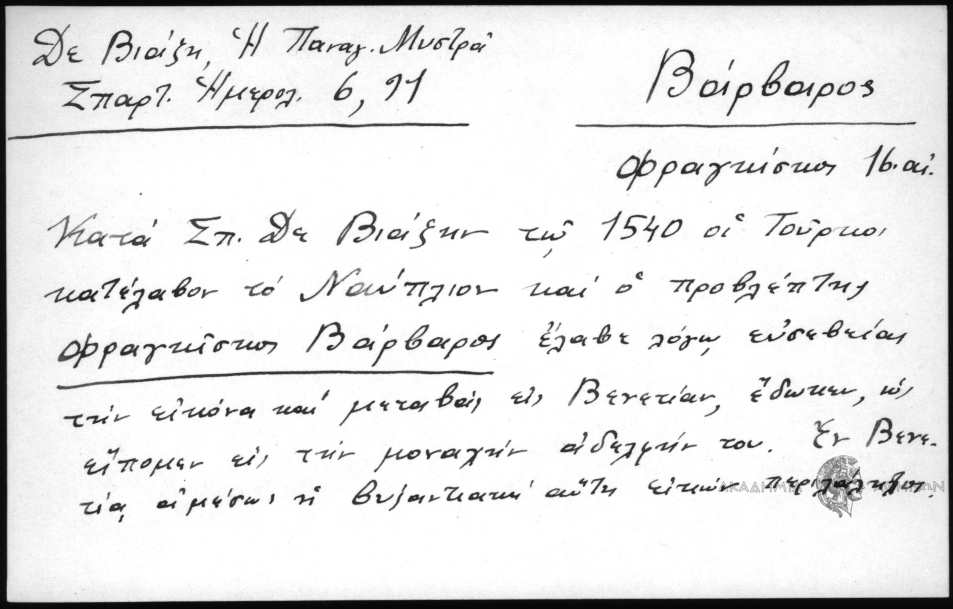 Δε Βιάζη, Ἡ Παναγ. Μυστρᾶ
Σπαρτ. Ἡμερολ. 6, 91
Βάρβαρος
Φραγκίσκος 16. αἰ.
Κατά Σπ. Δε Βιάζην τῷ 1540 οἱ Τοῦρκοι
κατέλαβον τό Ναύπλιον καί ὁ προβλέπτης
Φραγκῖσκος Βάρβαρος ἔλαβε λόγῳ εὐσεβείας
τήν εἰκόνα καί μεταβάς εἰς Βενετίαν, ἔδωκεν, ὡς
εἴπομεν εἰς τήν μοναχήν ἀδελφήν του. Ἐν Βενε-
τίᾳ ἀμέσως ἡ βυζαντιακή αὕτη εἰκών περιλάλητος.
ΑΚΑΔΗΜΙΑ ΑΘΗΝΩΝ